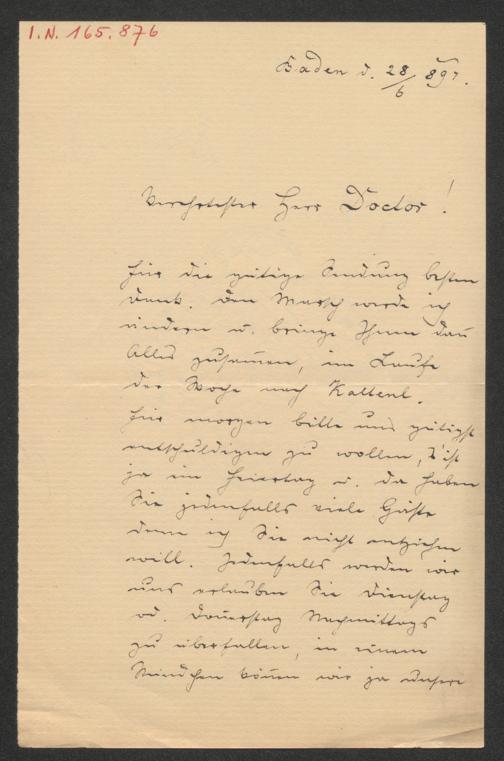 I.N. 165.876
Baden d. 28/6 897.
Verehrtester Herr Doctor!
Für die gütige Sendung besten
Dank. Den Marsch werde ich
ändern u. bringe Ihnen dan
Alles zusamen, im Laufe
der Woche nach Kaltenl.
Für morgen bitte uns gütigst
entschuldigen zu wollen, 's ist
ja ein Feiertag u. da haben
Sie jedenfalls viele Gäste
denen ich Sie nicht entziehen
will. Jedenfalls werden wir
uns erlauben Sie Dienstag
od. Donerstag Nachmittags
zu überfallen, in einem
Stündchen könen wir ja unsere